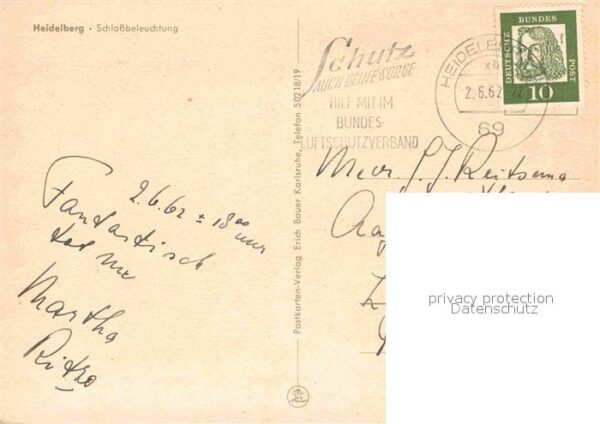 Heidelberg · Schloßbeleuchtung
2.6.62 ± 18 00 uur
Fantastisch
Martha
Postkarten-Verlag Erich Bauer Karlsruhe, Telefon 50218/19
Schutz
AUCH DEINE SORGE
HILF MIT IM
BUNDES-
LUFTSCHUTZVERBAND
HEIDELBERG
2.6.62
69
DEUTSCHE BUNDES POST
10
Mevr. J. J. Reitsema
privacy protection
Datenschutz